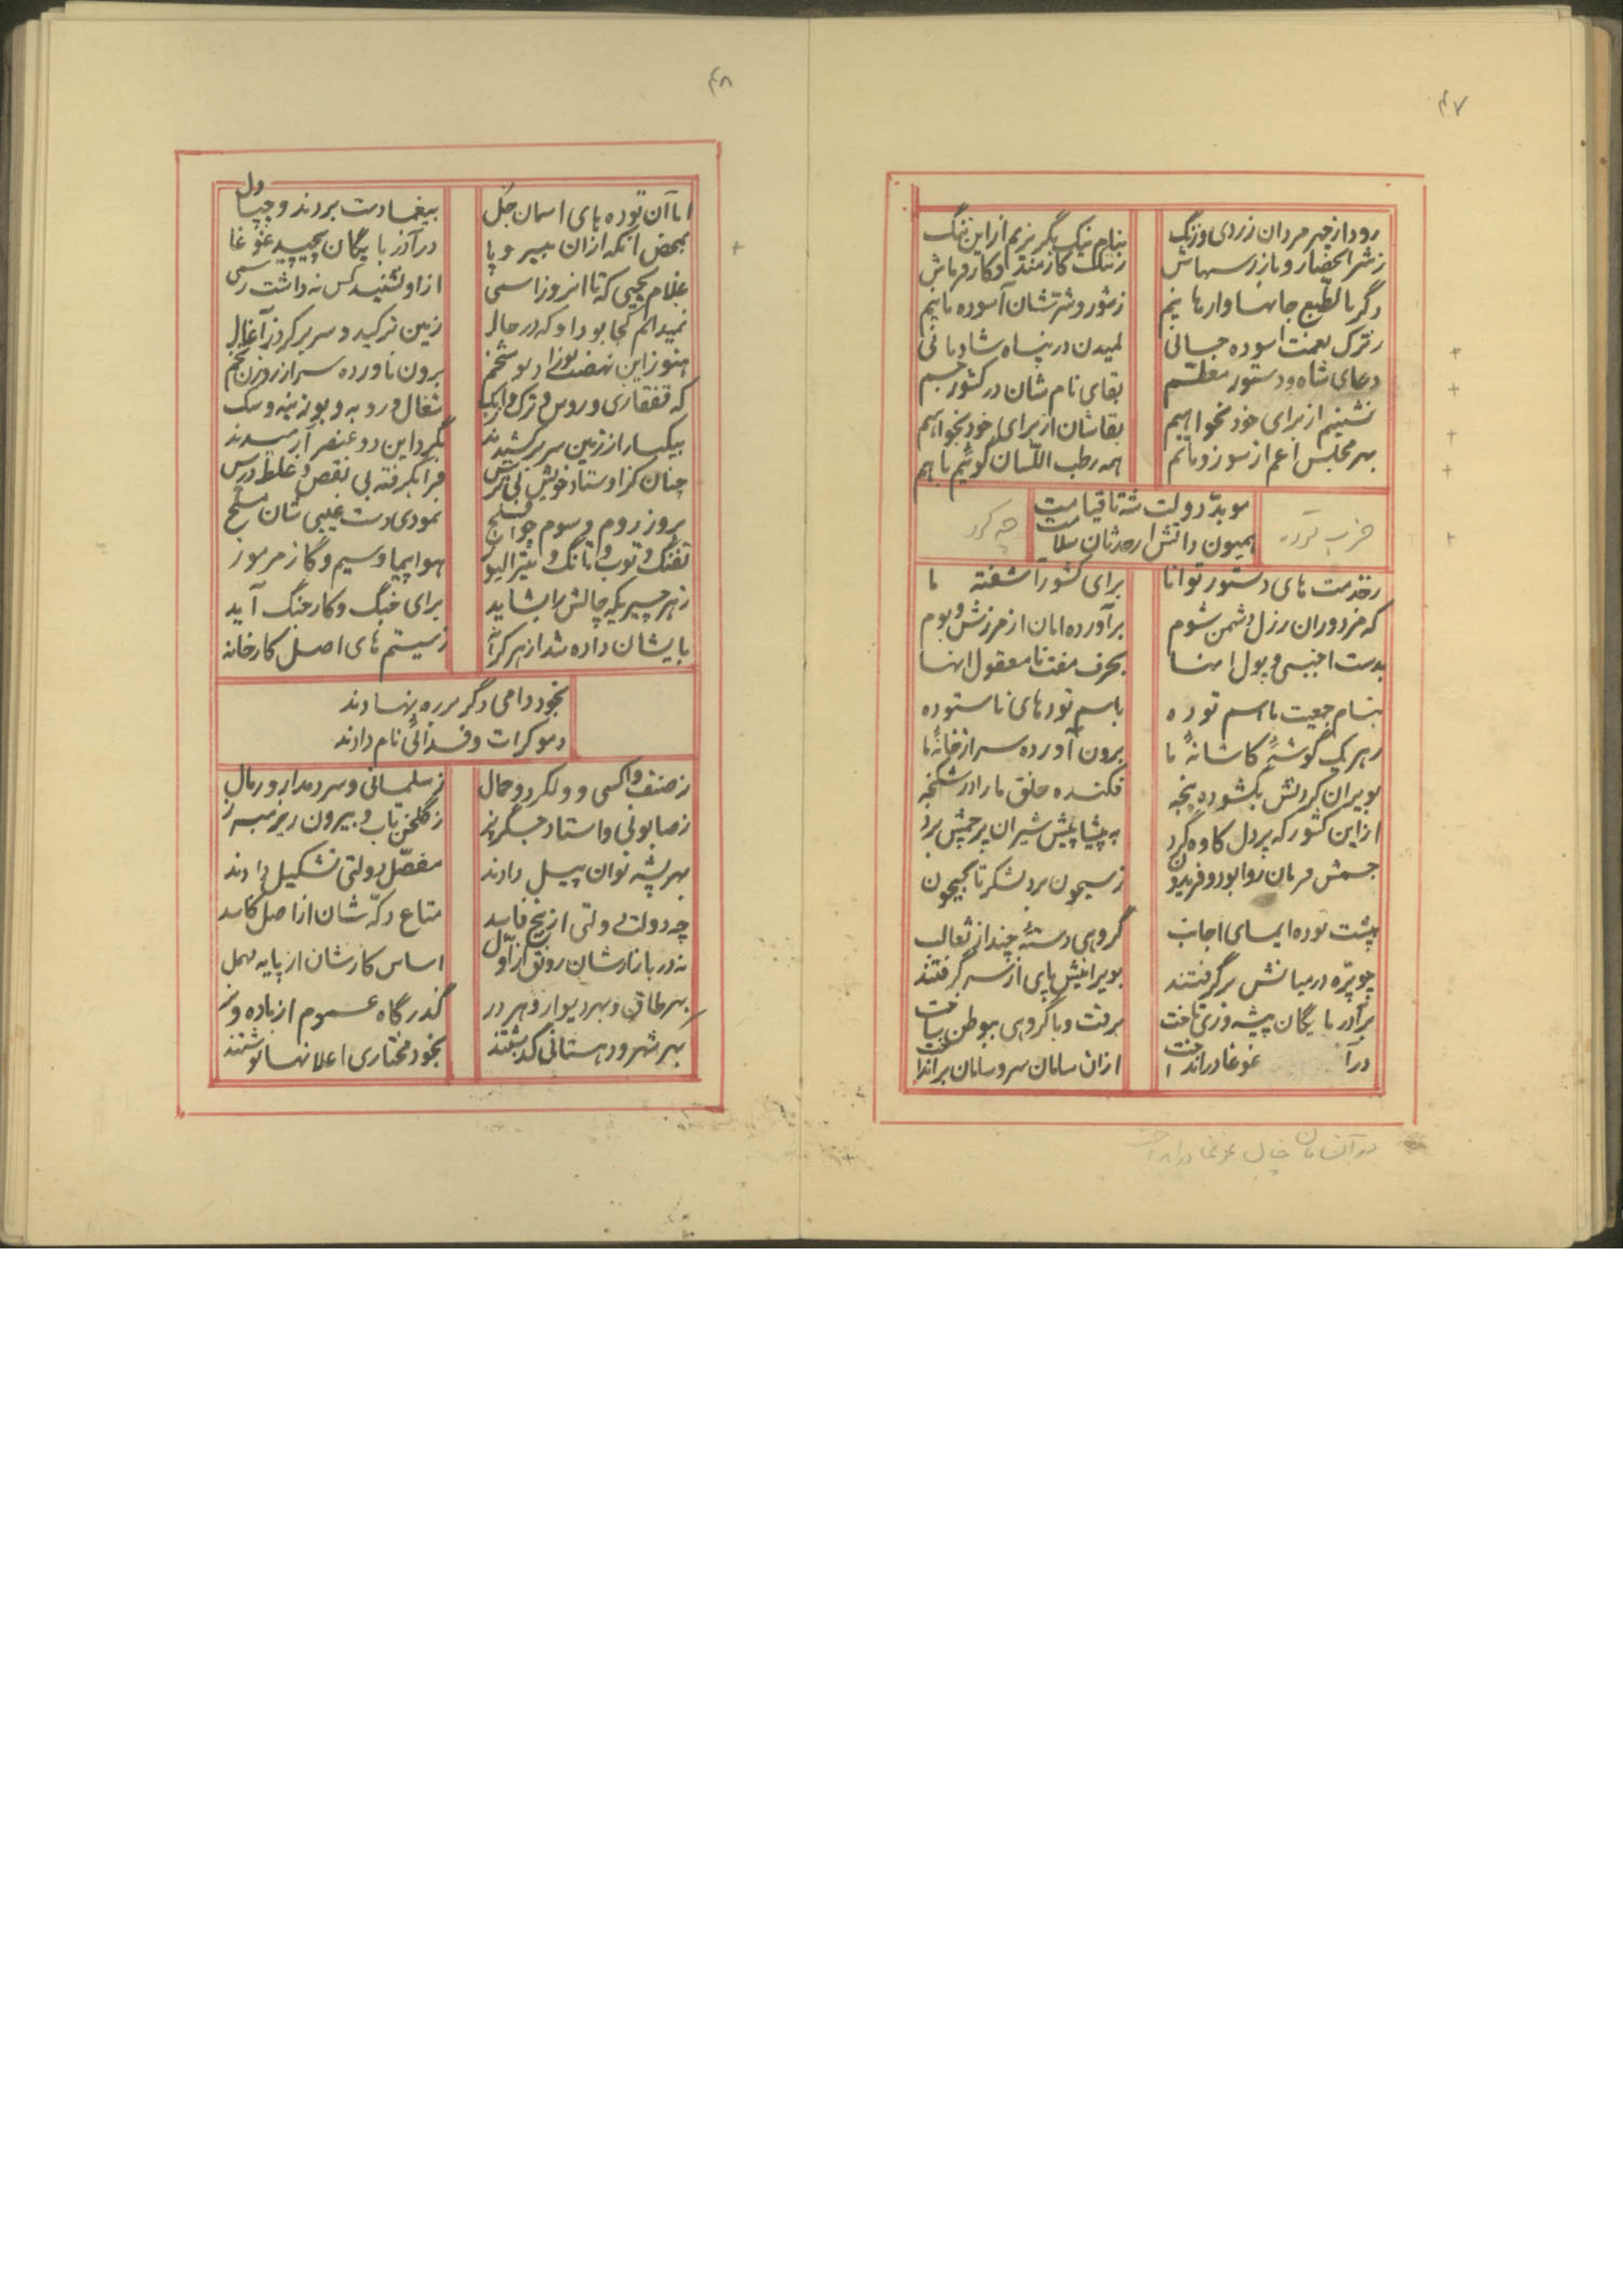 ۴۷
رود از چهر مردان زردی و زنگ
بنام نیک بگریزیم از این ننگ
ز شر احضار و بازرسهاش
ز ننگ کارمند و کارفرماش
دگر بالطبع جانها وارهانیم
ز شور و شرّشان آسوده مانیم
لمیدن در پناه شادمانی
دعای شاه و دستور معظّم
بقای نام شان در کشور جم
نشینیم از برای خود نخواهیم
بقاشان از برای خود بخواهیم
بهر مجلس اعم از سور و ماتم
همه رطب اللّسان گوئیم با هم
موبدّ دولت شه تا قیامت
حزب توده
چه کرد
ز خدمت های دستور توانا
برای کشور آشفته ما
که مزدوران رزل دشمن شوم
برآورده امان از مرزش و بوم
بدست اجنبی و پول آنها
بحرف مفت نامعقول آنها
بنام جمعیت با اسم توده
باسم توده‌های ناستوده
ز هر یک گوشهٔ کاشانهٔ ما
برون آورده سر از خانهٔ ما
بویران کردنش بگشوده پنجه
فکنده خلق ما را در شکنجه
از این کشور که پردل کاوه گرد
به پیشاپیش شیران پرچمش برد
جمش فرمان روا بود و فریدون
ز سیحون برد لشکر تا بجیحون
بپشت توده ایمای اجانب
گروهی دستهٔ چند از ثعالب
چو پرّه در میانش برگرفتند
بویرانیش پای از سر گرفتند
بر آذربایگان پیشه‌وری تاخت
برفت و با گروهی بی‌وطن ساخت
در آ غوغا درانداخت
از آن سامان سر و سامان برانداخت
در آنسامان چنان غوغا درانداخت
۴۸
اما آن توده بای اسمان جل
بیغما دست بردند و چپاول
بمحض آنکه از آن بیسر و پا
در آذربایگان پیچید غوغا
غلام یحیی که تا امروز اسمی
از او نشنید کس نه داشت رسمی
نمیدانم کجا بود او که در حال
زمین ترکید و سر بر کرد ز آغال
هنوز این نهضت نوزاد بو شخم
برون ناورده سر از روزن تخم
که قفقازی و روس و ترک و ازبک
شغال و روبه و بوزینه و سگ
بیکبار از زمین سر برکشیدند
بگرد این دو عنصر آرمیدند
چنان کز اوستاد خویش بی ترس
فرا بگرفته بی نقص و غلط درس
بروز روم و سوم جوان فلج
نمودی دست غیبی شان مسلح
تفنگ و توپ و تانک و میترالیوز
هواپیما و سیم و گاز مرموز
ز هر چیزیکه چالش را بشاید
برای جنگ و کار جنگ آید
بایشان داده شد از هر کرانه
ز سیستم های اصل کارخانه
بخود دامی دگر در ره نهادند
دموکرات و فدائی نام دادند
ز صنف واکسی و ولگرد و حمال
ز سلمانی و سردمدار و رمال
ز صابونی و استاد جگرپز
ز گلخن تاب و بیرون ریز مبرز
بهر پشه توان پیل دادند
مفصّل دولتی تشکیل دادند
چه دولت دولتی از بیخ فاسد
متاع دکّه شان از اصل کاسد
نه در بازارشان رونق ز اوّل
اساس کارشان از پایه مهمل
بهر طاق و بهر دیوار و هر در
گذرگاه عموم از ماده و نر
بهر شهر و دهستانی گذشتند
بخود مختاری اعلانها نوشتند